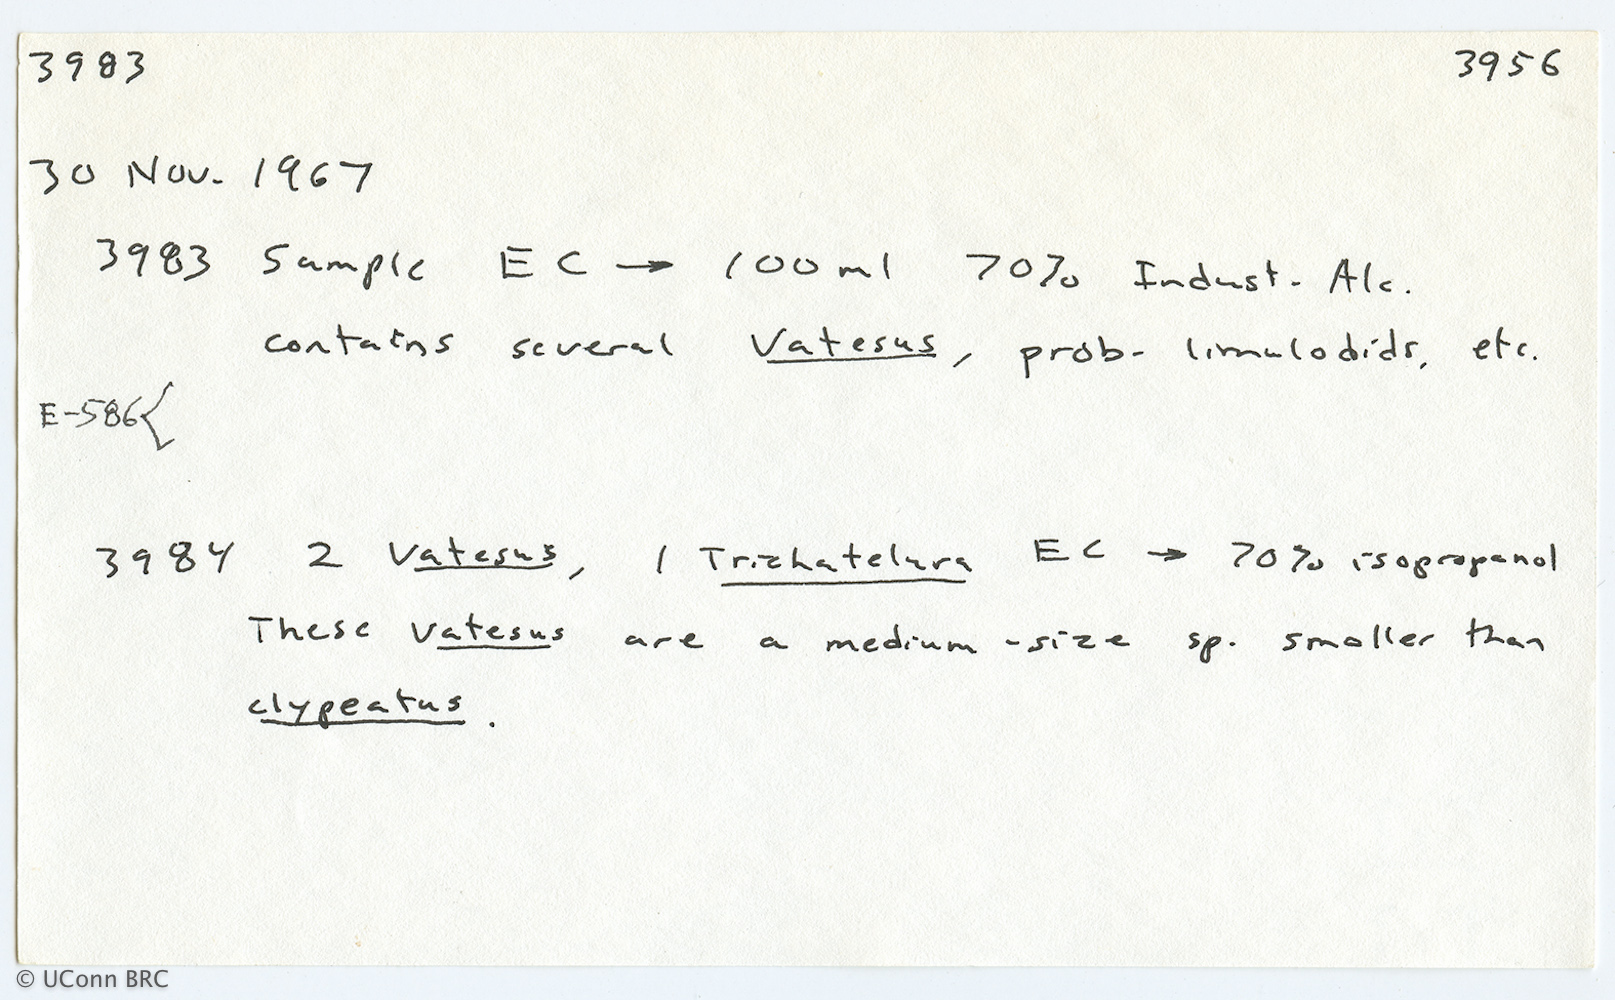 3983 3956
30 Nov. 1967
3983 Sample EC → 100 ml 70% Indust. Alc.
contains several Vatesus, prob. limulodids, etc.
E-586{
3984 2 Vatesus, 1 Trichatelura EC → 70% isopropanol
These Vatesus are a medium-size sp. smaller than
clypeatus.
© UConn BRC